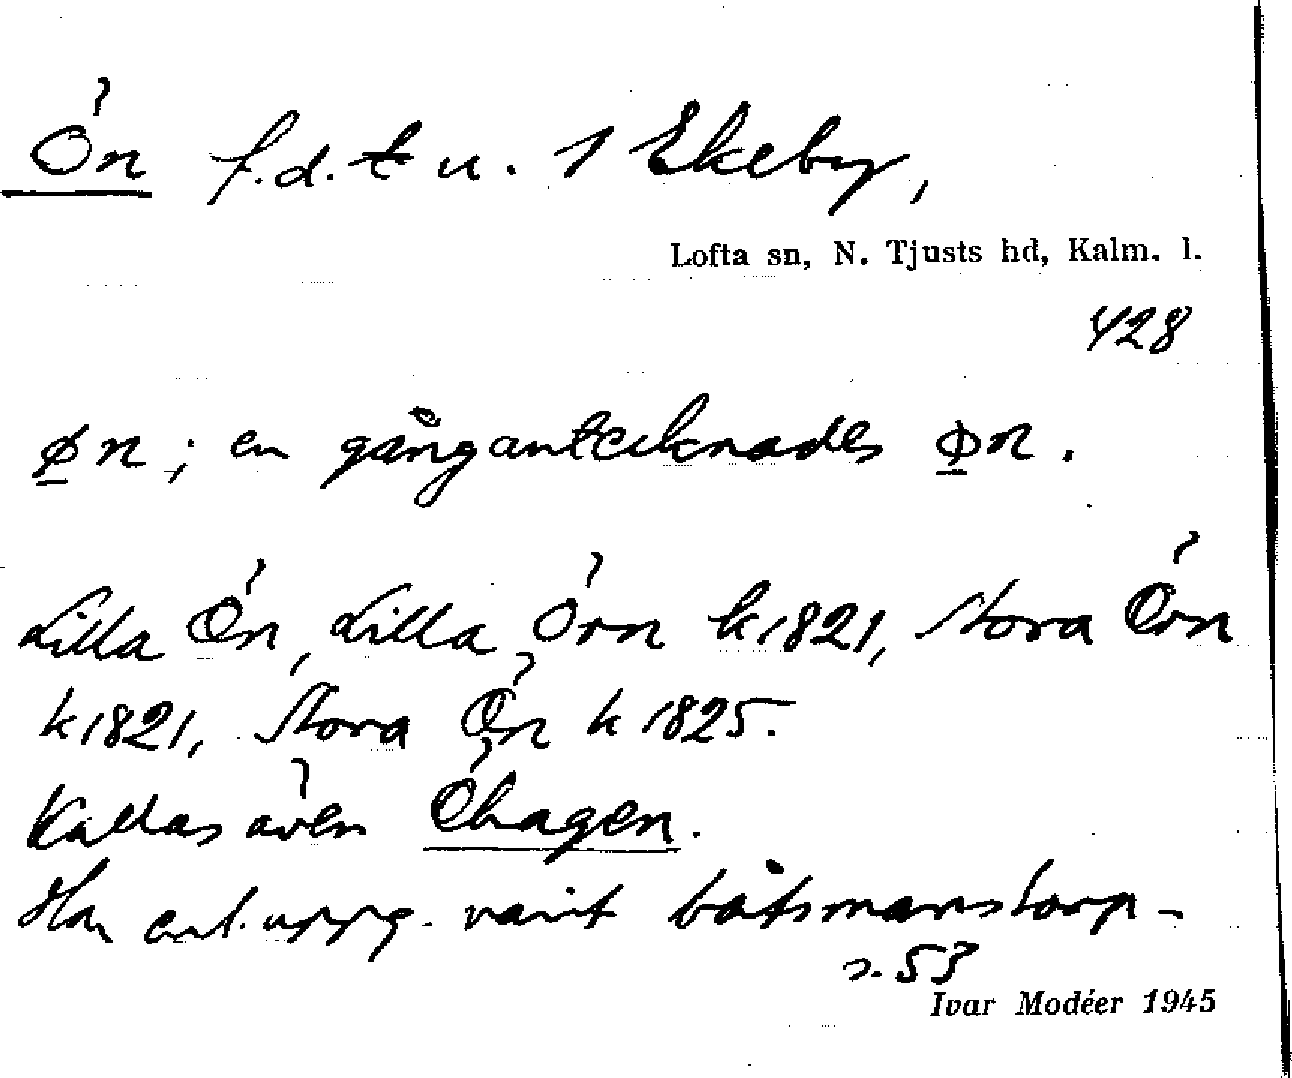 Ön f.d. t u. 1 Ekeby,
Lofta sn, N. Tjusts hd, Kalm. l.
428
øn; en gång antecknades øn.
Lilla Ön, Lilla Örn k 1821, Stora Örn
k 1821, Stora Ön k 1825.
Kallas även Öhagen.
Har enl. uppg. varit båtsmanstorp -
s. 53
Ivar Modéer 1945